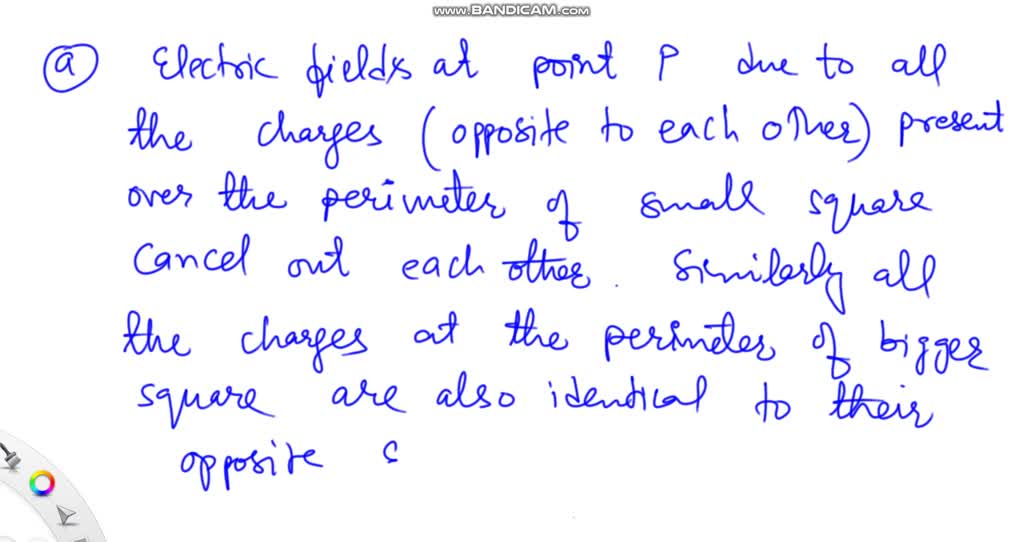 www.BANDICAM.com
a Electric fields at point P due to all
the charges (opposite to each other) present
over the perimeter of small square
cancel out each other. Similarly all
the charges at the perimeter of bigger
square are also identical to their
opposite s